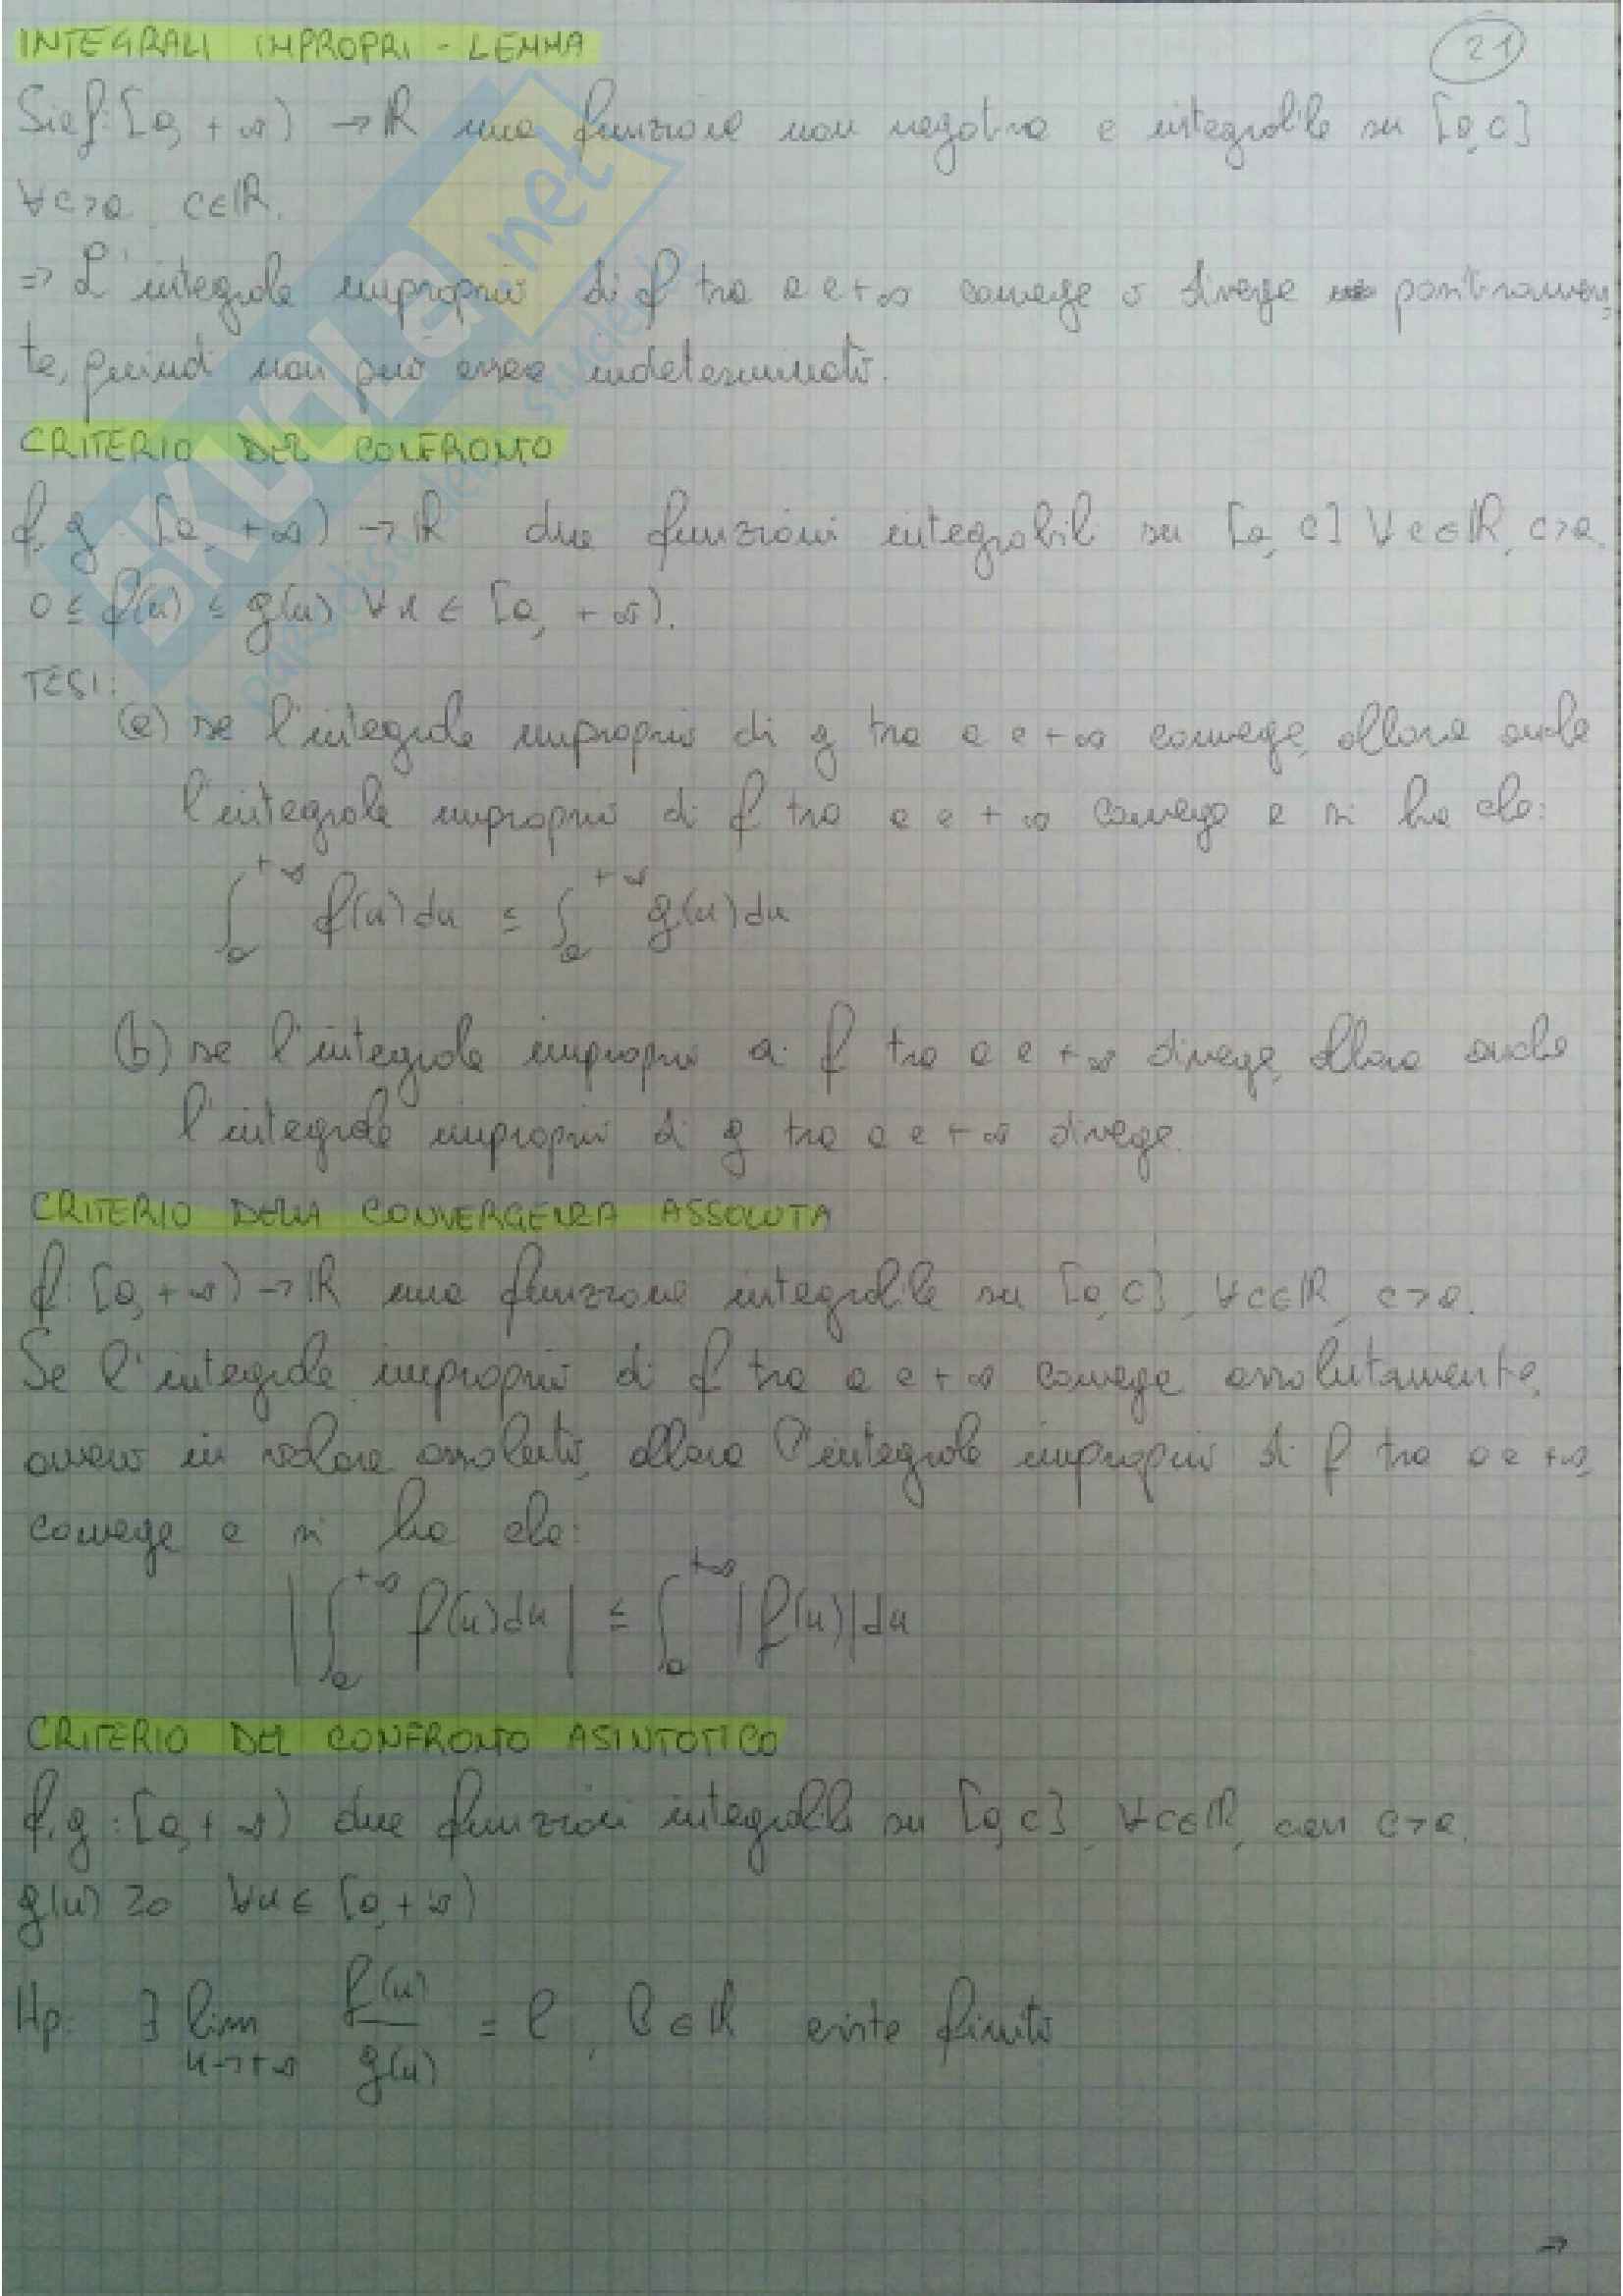 INTEGRALI IMPROPRI - LEMMA
21
Sia f: [a, +∞) → ℝ una funzione non negativa e integrabile su [a, c]
∀c>a, c∈ℝ.
⇒ L'integrale improprio di f tra a e +∞ converge o diverge positivamen
te, quindi non può essere indeterminato.
CRITERIO DEL CONFRONTO
f, g : [a, +∞) → ℝ due funzioni integrabili su [a, c] ∀c∈ℝ, c>a.
0 ≤ f(x) ≤ g(x) ∀x ∈ [a, +∞).
TESI:
(a) se l'integrale improprio di g tra a e +∞ converge, allora anche
l'integrale improprio di f tra a e +∞ converge e si ha che:
∫ₐ^{+∞} f(x)dx ≤ ∫ₐ^{+∞} g(x)dx
(b) se l'integrale improprio di f tra a e +∞ diverge, allora anche
l'integrale improprio di g tra a e +∞ diverge.
CRITERIO DELLA CONVERGENZA ASSOLUTA
f: [a, +∞) → ℝ una funzione integrabile su [a, c], ∀c∈ℝ, c>a.
Se l'integrale improprio di f tra a e +∞ converge assolutamente,
ovvero in valore assoluto, allora l'integrale improprio di f tra a e +∞
converge e si ha che:
|∫ₐ^{+∞} f(x)dx| ≤ ∫ₐ^{+∞} |f(x)|dx
CRITERIO DEL CONFRONTO ASINTOTICO
f, g : [a, +∞) due funzioni integrabili su [a, c], ∀c∈ℝ, con c>a.
g(x) >0 ∀x ∈ [a, +∞)
Hp: ∃ lim_{x→+∞} f(x)/g(x) = l, l∈ℝ esiste finito
→
SKUOLA.net